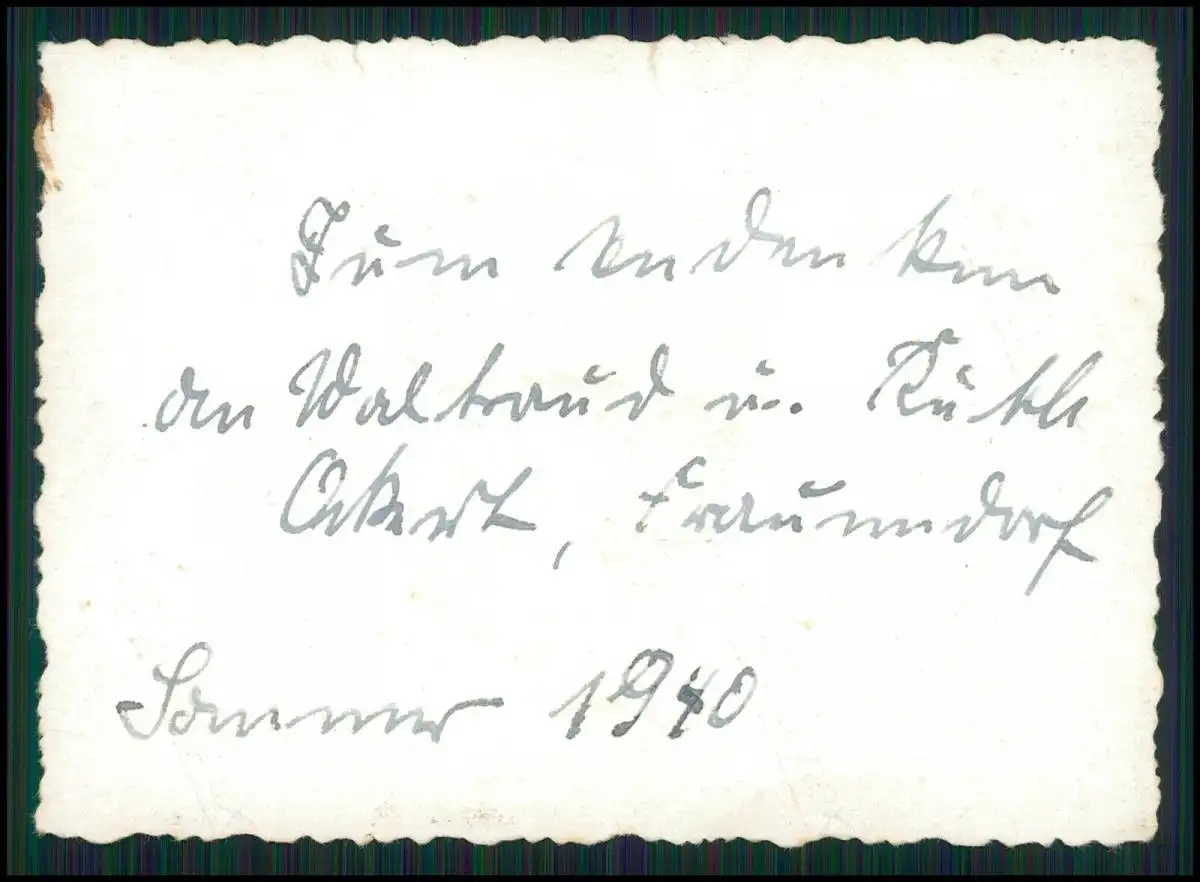 Zum Andenken
an Waltraud u. Ruth
Ackert, Fraundorf
Sommer 1940